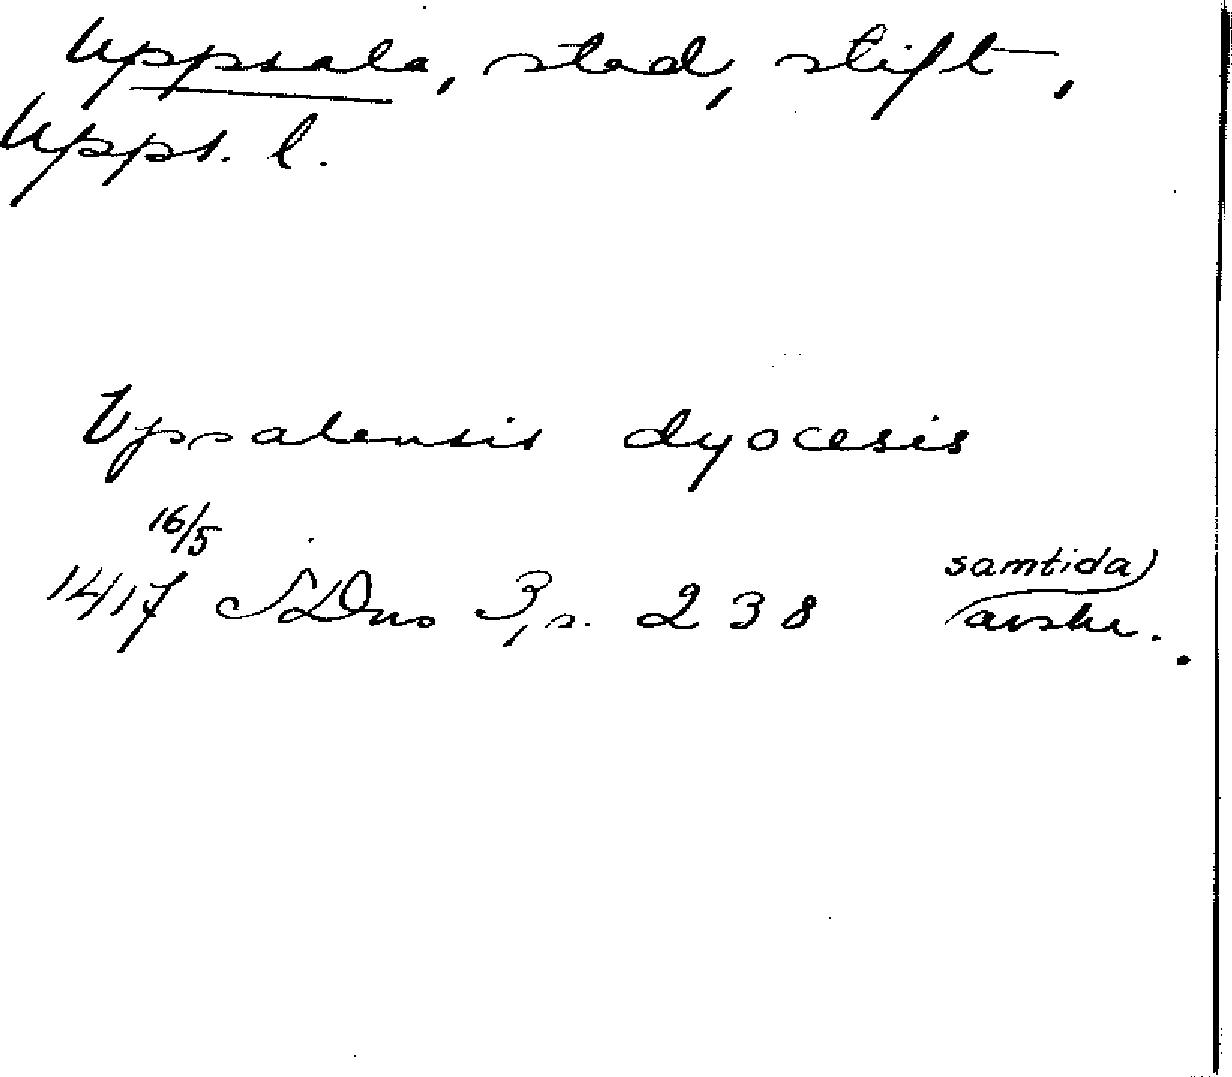 Uppsala, stad, stift,
Upps. l.
Vpsalensis dyocesis
16/5
1417 SDns 3, s. 238 samtida
avskr.